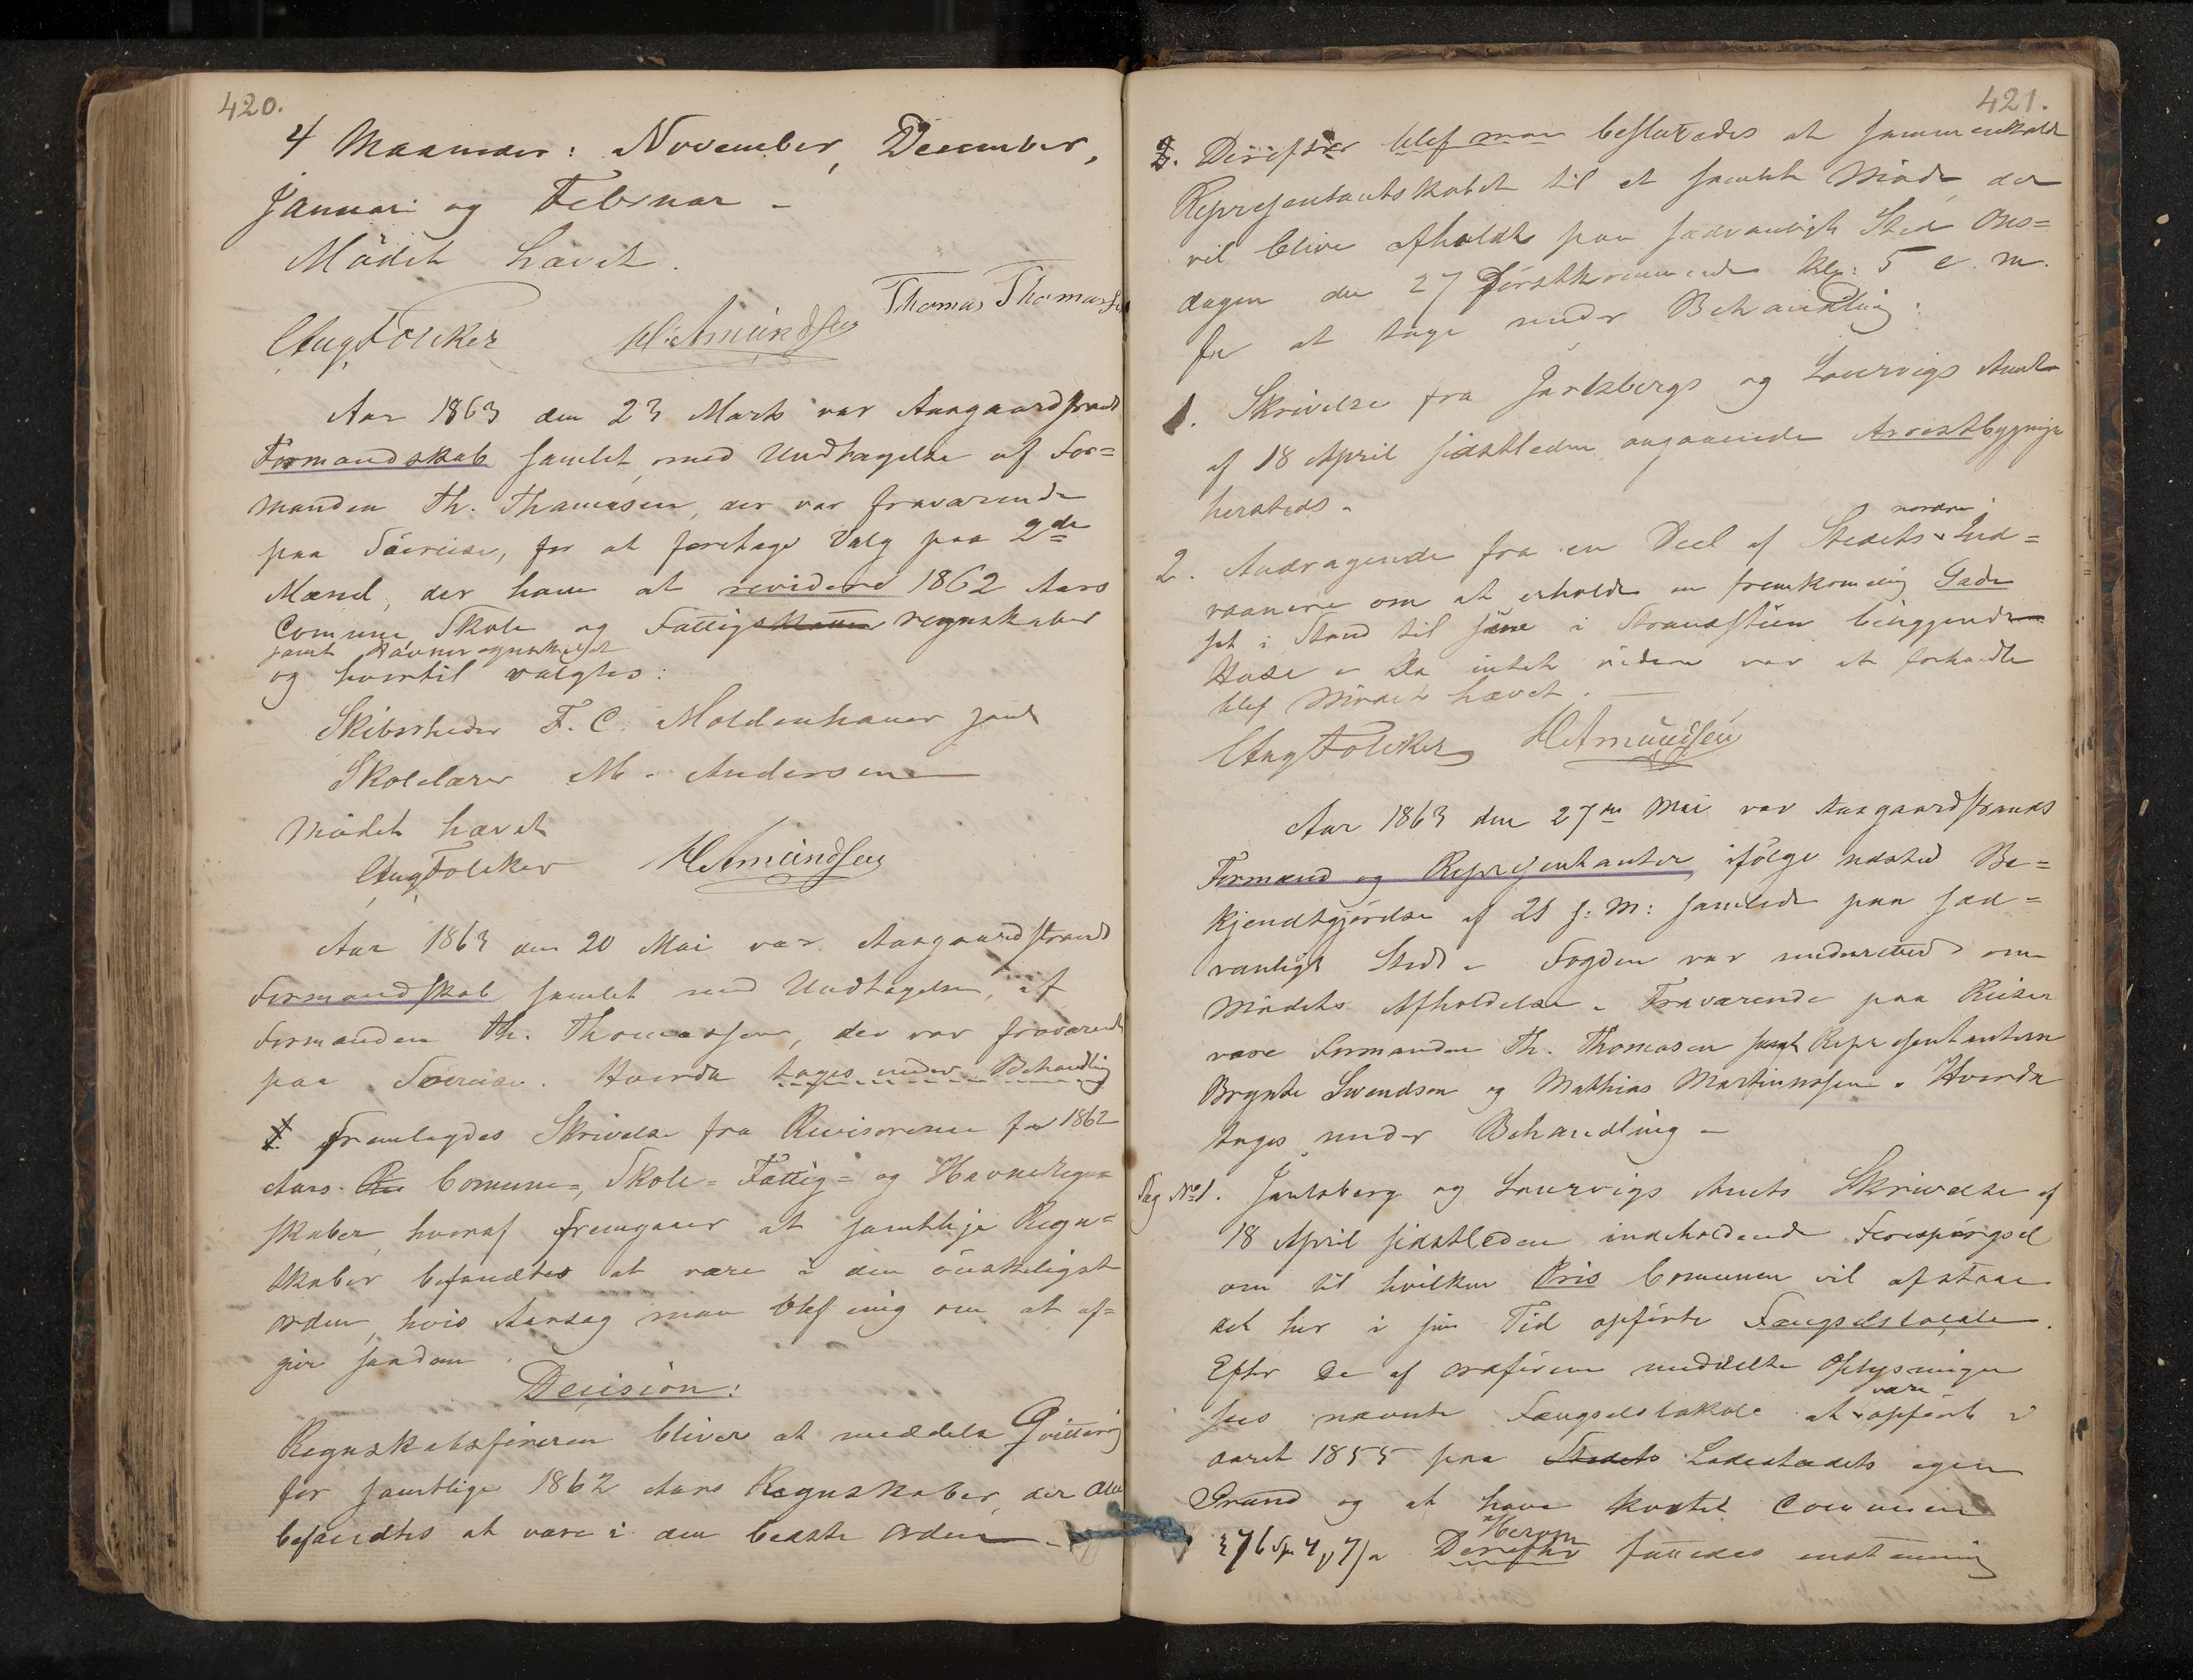 420.
4 Maaneder: November, December,
Januari og Februar –
Mödet hævet.
Thomas Thomassen
Aug Folcker H. Amundsen
Aar 1863 den 23 Marts var Aasgaardstrands
Formandskab samlet, med Undtagelse af For=
manden Th. Thomesen, der var fraværende
paa Söereise, for at foretage Valg paa 2de
Mænd, der have at revidere 1862 Aars
Comune, Skole og Fattigskatten regnskaber
samt Havneregnskabet
og hvortil valgtes:
Skibsrheder F. C. Moldenhauer samt
Skolelærer M. Andersen
Mödet hævet
Aug Folcker H Amundsen
Aar 1863 den 20 Mai var Aasgaardstrands
Formandskab samlet med Undtagelse, af
Formanden Th. Thomassen, der var fraværende
paa Soereise. Hvorda toges under Behandling
1. Fremlagdes Skrivelse fra Revisorerne for 1862
Aars Comune=, Skole= Fattig= og Havneregn=
skaber, hvoraf fremgaaer at samtlige Regn=
skaber befandtes at være i den önskeligste
orden, hvis Aarsag man blef enig om at af=
give saadan
Decision:
Regnskabsföreren bliver at meddele Qvittering
for samtlige 1862 Aars Regnskaber, der alle
befandtes at være i den bedste Orden –
421.
2. Derefter blef man besluttedes at sammenkalde
Repræsentantskabet til et samlet Möde der
vil blive afholdt paa sædvanligt Sted Ons=
dagen den 27 förstkommende kl: 5 e. m.
for at tage under Behandling:
1. Skrivelse fra Jarlsbergs og Laurvigs Amt
af 18 April sidstleden angaaende Arrestbygninge
hersteds.
2. Andragende fra en Deel af Stedets nordre Ind=
vaanere om at erholde en fremkommelig Gade
sat i Stand til sine i Strandstien beliggende
Huse – Da intet videre var at forhandle
blef Mödet hævet. –
Aug Folcker H Amundsen
Aar 1863 den 27de Mai var Aasgaardstrands
Formænd og Repræsentanter, ifölge udsted Be=
kjendtgjörelse af 21 s: M: samlede paa sæd=
vanligt Sted – Fogden var underrettet om
Mödets Afholdelse. Fraværende paa Reiser
vare Formanden Th. Thomesen samt Repræsentanterne
Brynte Svendsen og Mathias Martinussen. Hvorda
toges under Behandling –
Sag No 1. Jarlsberg og Laurvigs Amts Skrivelse af
18 April sidstleden indeholdende Forespörgsel
om til hvilken Pris Comunen vil afstaae
det her i sin Tid opförte Fængselslocale.
Efter de af Ordföreren meddelte Oplysninger
sees nævnte Fængselslokale at være opfört i
aaret 1855 paa Stedets Ladestedets egen
Grund og at have kostet Comunen
276 Sp 4 7 s. Derefter Herom fattedes enstemmig